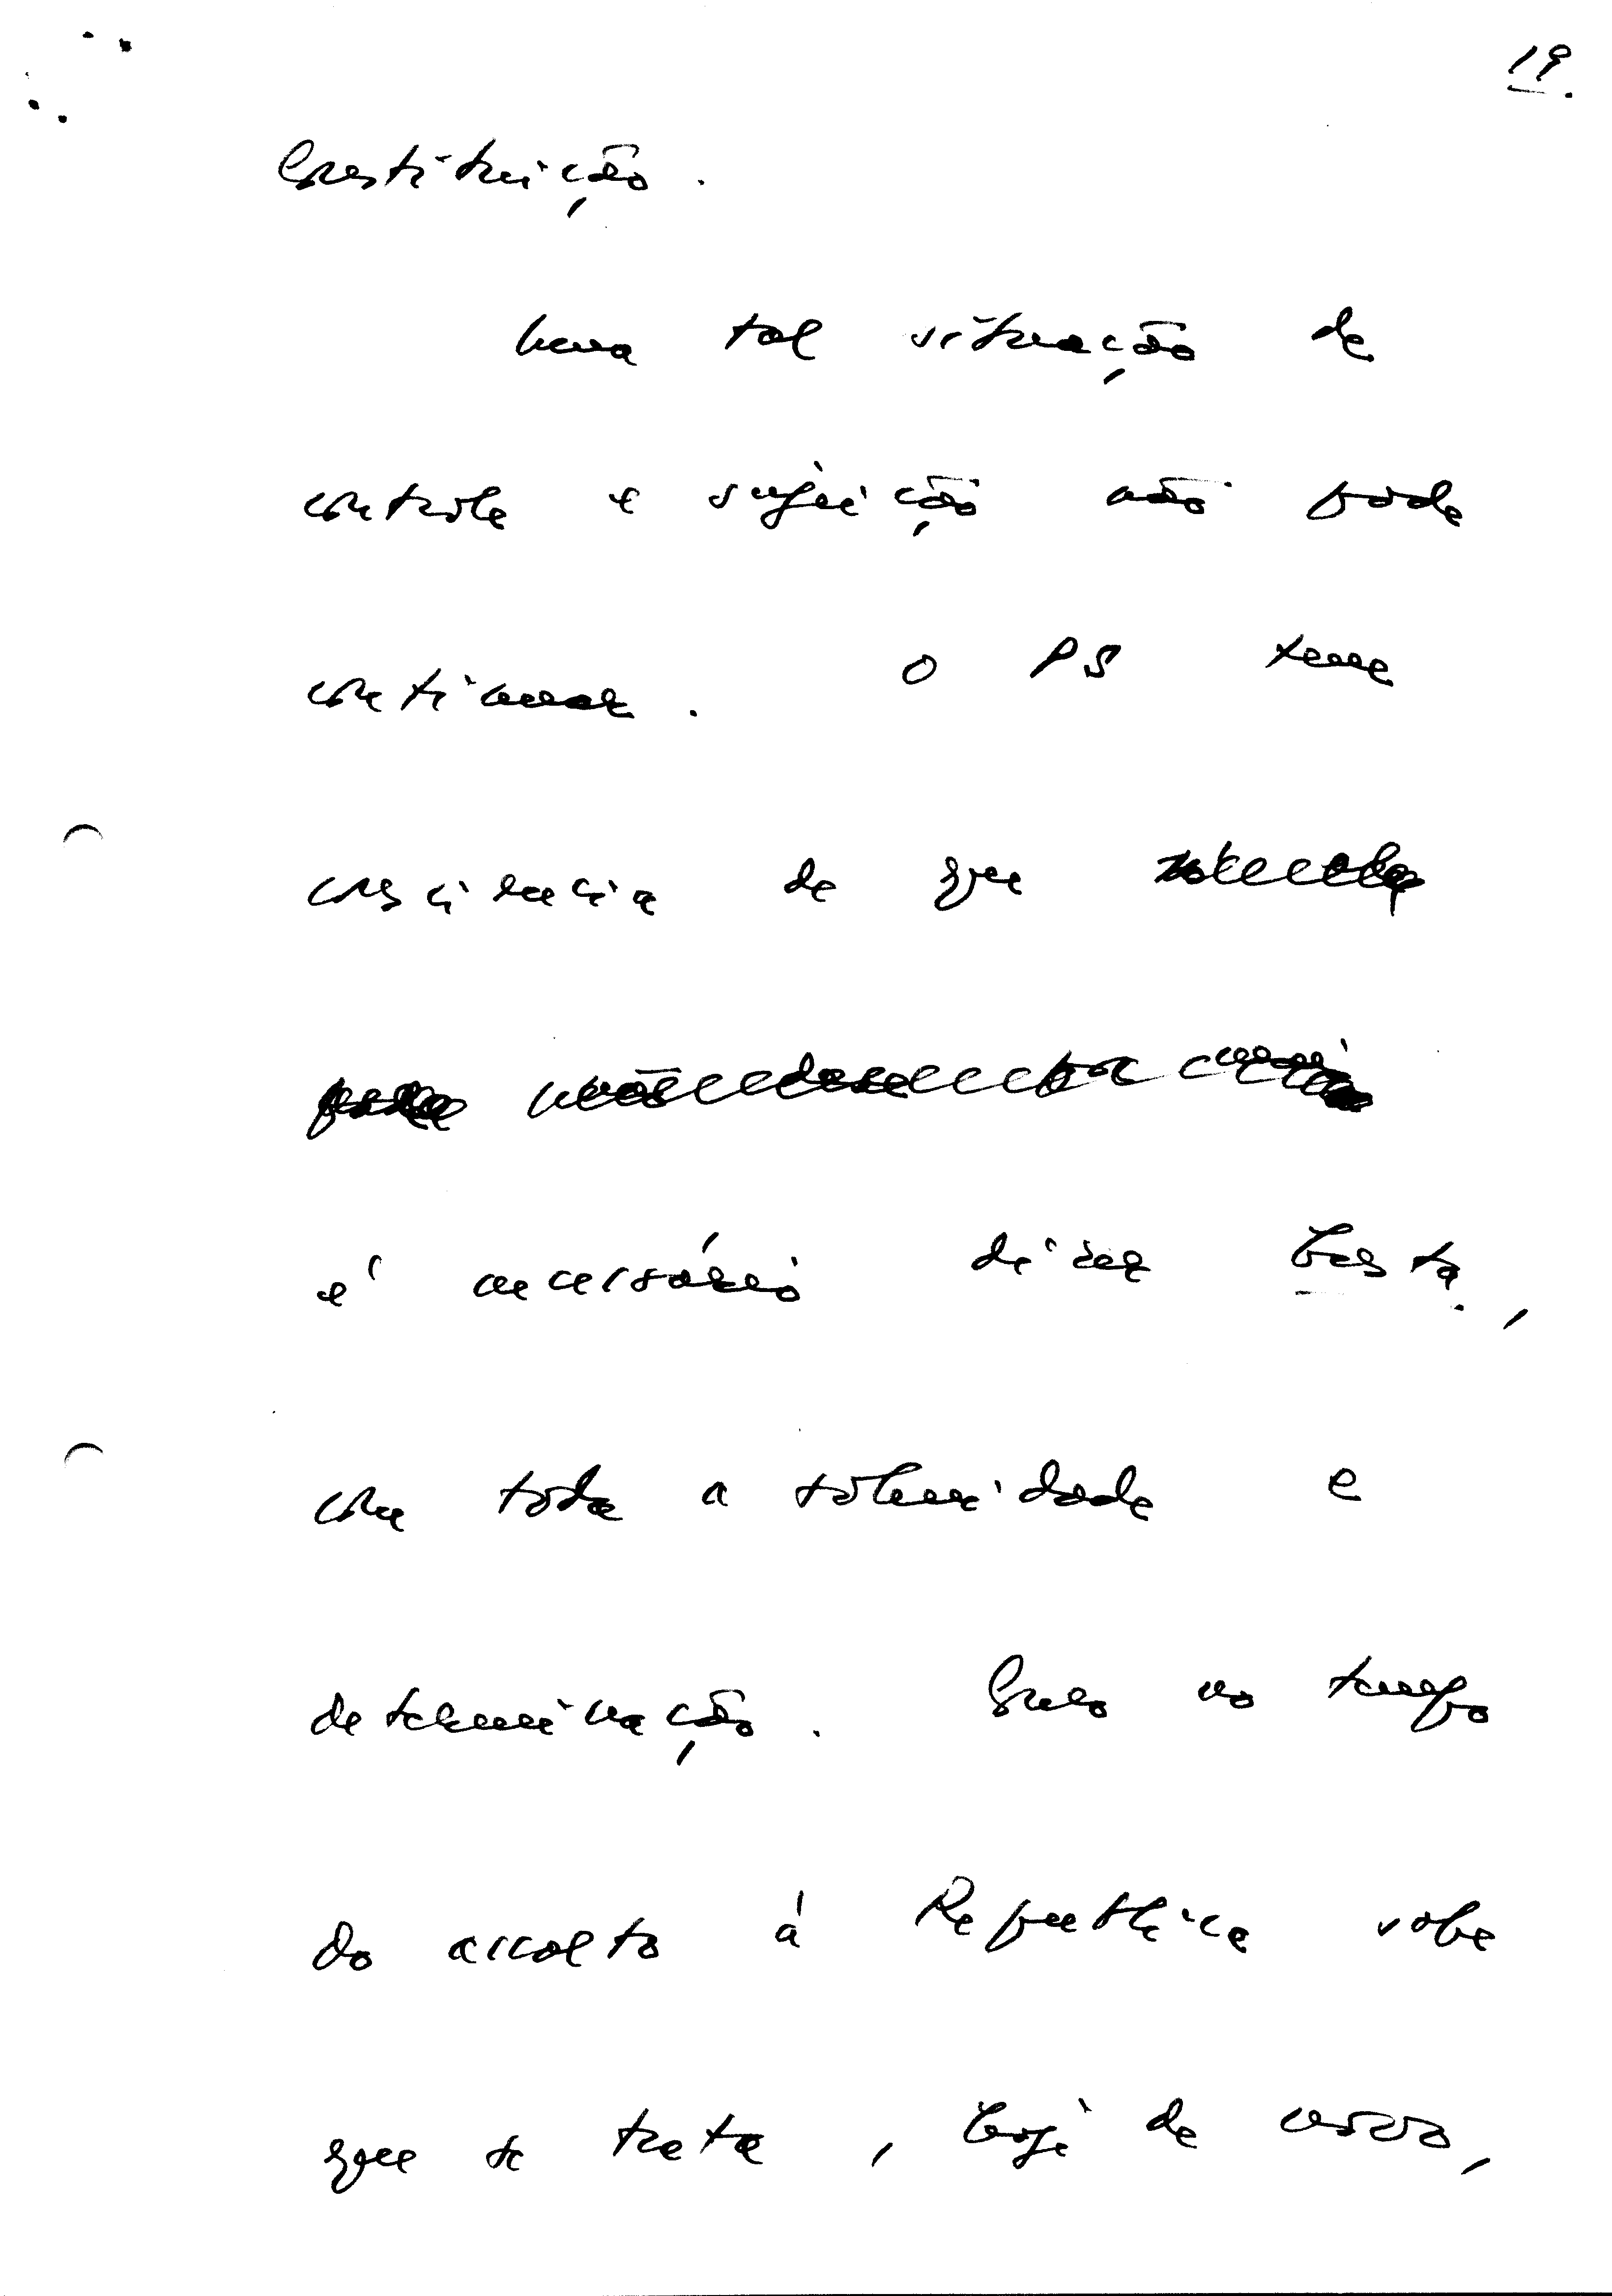 19.
Constituição.
Uma tal situação de
controle e sujeição não pode
continuar. O PS tem
consciência de que
é necessário dizer basta,
com toda a solenidade e
determinação. Como no tempo
do assalto à República sobe
que se trata, hoje de novo,